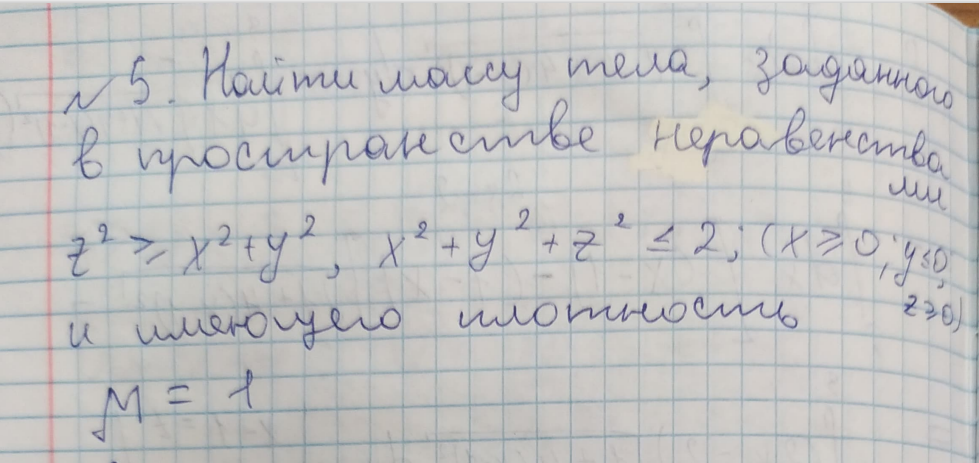 №5. Найти массу тела, заданного
в пространстве неравенства
ми
z² ≥ x²+y², x²+y²+z² ≤ 2; (x ≥ 0; y≤0,
и имеющего плотность z≥0)
M = 1